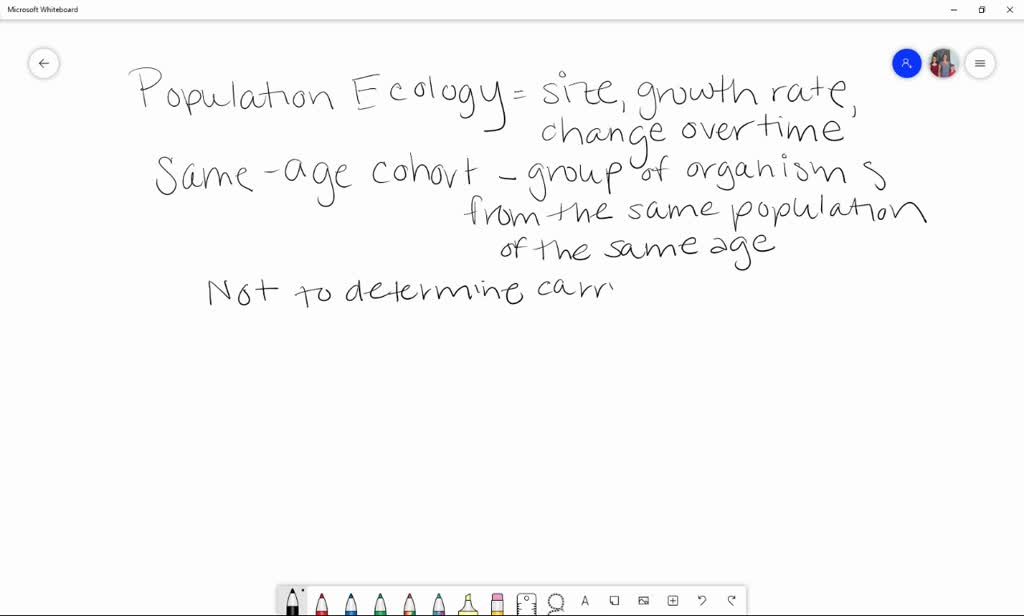 Microsoft Whiteboard
Population Ecology = size, growth rate,
change over time
Same-age cohort - group of organisms
from the same population
of the same age
Not to determine carri
A